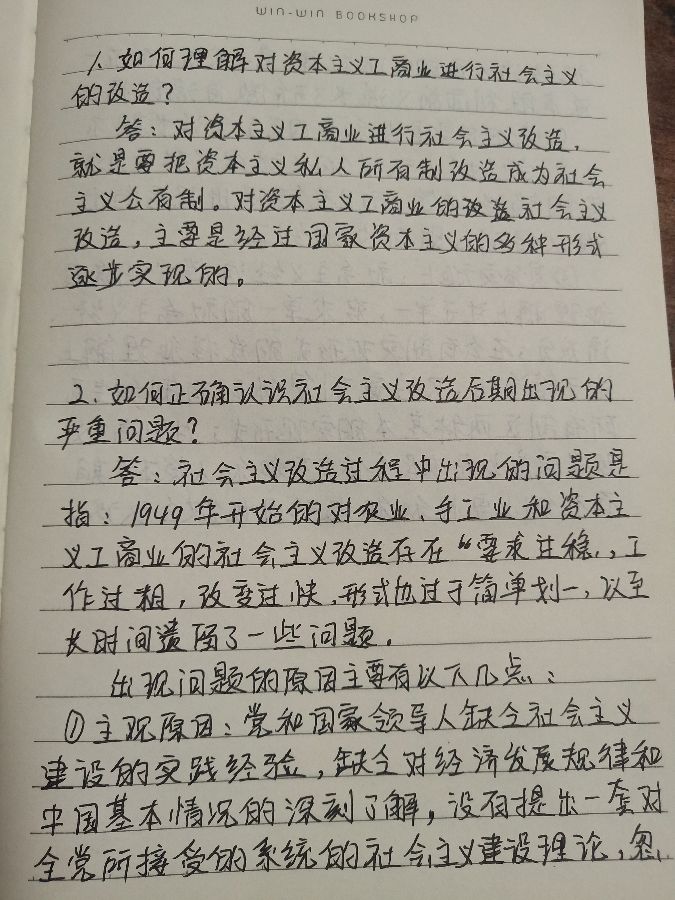 WIN-WIN BOOKSHOP
1.如何理解对资本主义工商业进行社会主义
的改造？
答：对资本主义工商业进行社会主义改造，
就是要把资本主义私人所有制改造成为社会
主义公有制。对资本主义工商业的改造社会主义
改造，主要是经过国家资本主义的多种形式
逐步实现的。
2.如何正确认识社会主义改造后期出现的
严重问题？
答：社会主义改造过程中出现的问题是
指：1949年开始的对农业、手工业和资本主
义工商业的社会主义改造存在“要求过稳，，工
作过粗，改变过快，形式也过于简单划一，以至
长时间遗留了一些问题。
出现问题的原因主要有以下几点：
①主观原因：党和国家领导人缺乏社会主义
建设的实践经验，缺乏对经济发展规律和
中国基本情况的深刻了解，没有提出一套对
全党所接受的系统的社会主义建设理论，忽